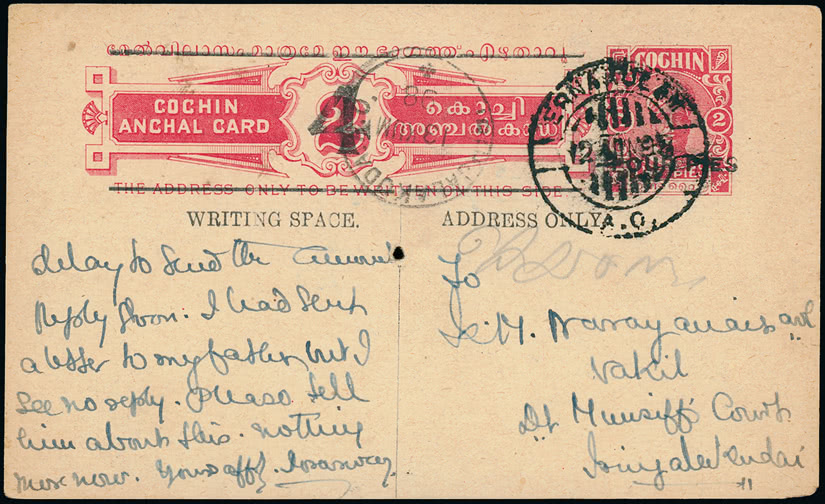 മേൽവിലാസം മാത്രമേ ഈ ഭാഗത്ത് എഴുതാവൂ
COCHIN
ANCHAL CARD
കൊച്ചി
അഞ്ചൽകാർഡ്
4
COCHIN
2
THE ADDRESS ONLY TO BE WRITTEN ON THIS SIDE
ERNAKULAM
A.O.
WRITING SPACE.
ADDRESS ONLY
delay to send the amount
Reply soon. I had sent
a letter to my father, but I
see no reply. Please tell
him about this. nothing
more now. Yours affly.
To
M. Narayana
Vakil
Dt Munsiff's Court
Iringalakudai